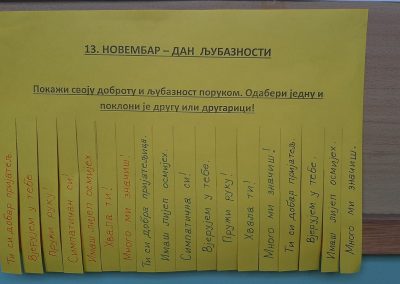 13. НОВЕМБАР – ДАН ЉУБАЗНОСТИ
Покажи своју доброту и љубазност поруком. Одабери једну и
поклони је другу или другарици!
Ти си добар пријатељ
Вјерујем у тебе
Пружи руку!
Симпатичан си!
Имаш лијеп осмијех
Хвала ти!
Много ми значиш!
Ти си добра пријатељица.
Имаш лијеп осмијех.
Симпатична си!
Вјерујем у тебе.
Пружи руку!
Хвала ти!
Много ми значиш!
Ти си добар пријатељ
Вјерујем у тебе.
Имаш лијеп осмијех.
Много ми значиш.